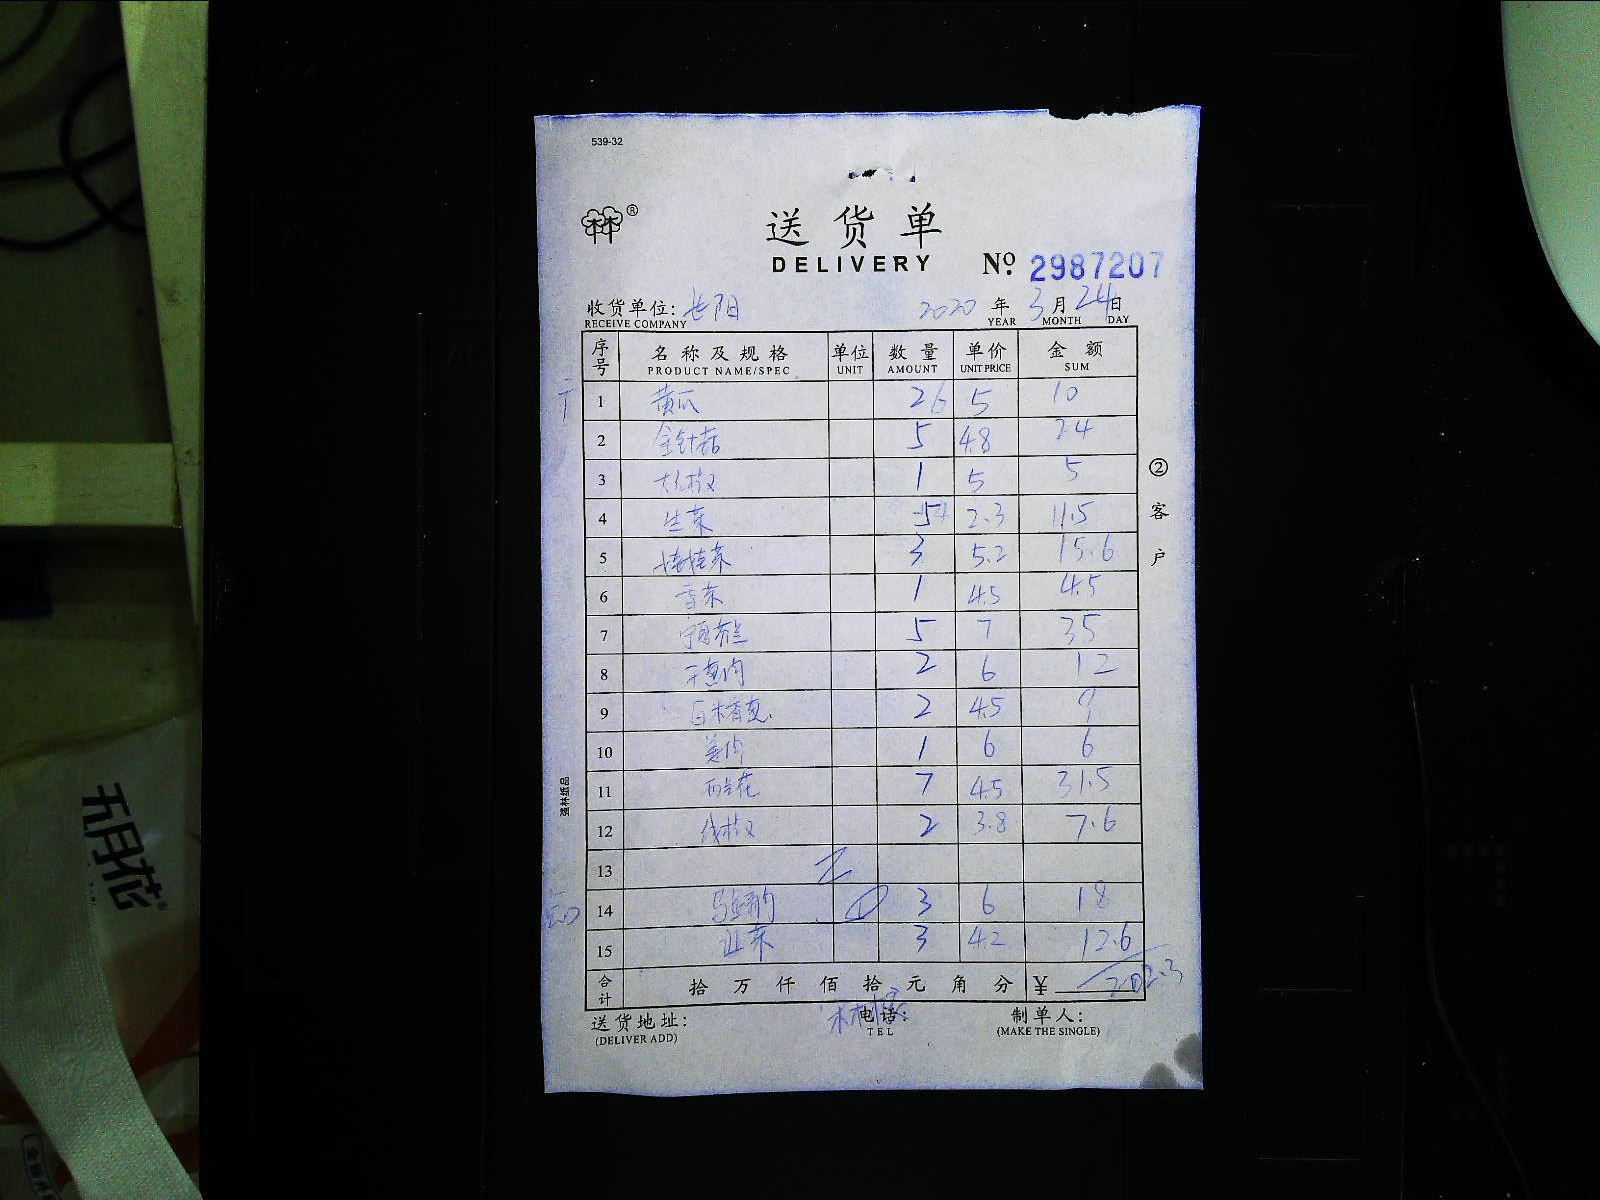 539-32
林林®
送货单
DELIVERY № 2987207
收货单位: 长阳 2020 年 3 月 24 日
RECEIVE COMPANY YEAR MONTH DAY
序号 名称及规格 单位 数量 单价 金额
PRODUCT NAME/SPEC UNIT AMOUNT UNIT PRICE SUM
1 黄瓜 26 5 10
2 金针菇 5 4.8 24
3 大红椒 1 5 5
4 生菜 5 2.3 11.5
5 娃娃菜 3 5.2 15.6
6 香菜 1 4.5 4.5
7 5 7 35
8 干葱肉 2 6 12
9 2 4.5 9
10 姜肉 1 6 6
11 西兰花 7 4.5 31.5
12 线椒 2 3.8 7.6
13
14 3 6 18
15 3 4.2 12.6
合计 拾 万 仟 佰 拾 元 角 分 ¥ 202.3
送货地址: 电话: 制单人:
(DELIVER ADD) TEL (MAKE THE SINGLE)
②客户
强林纸品
五月花